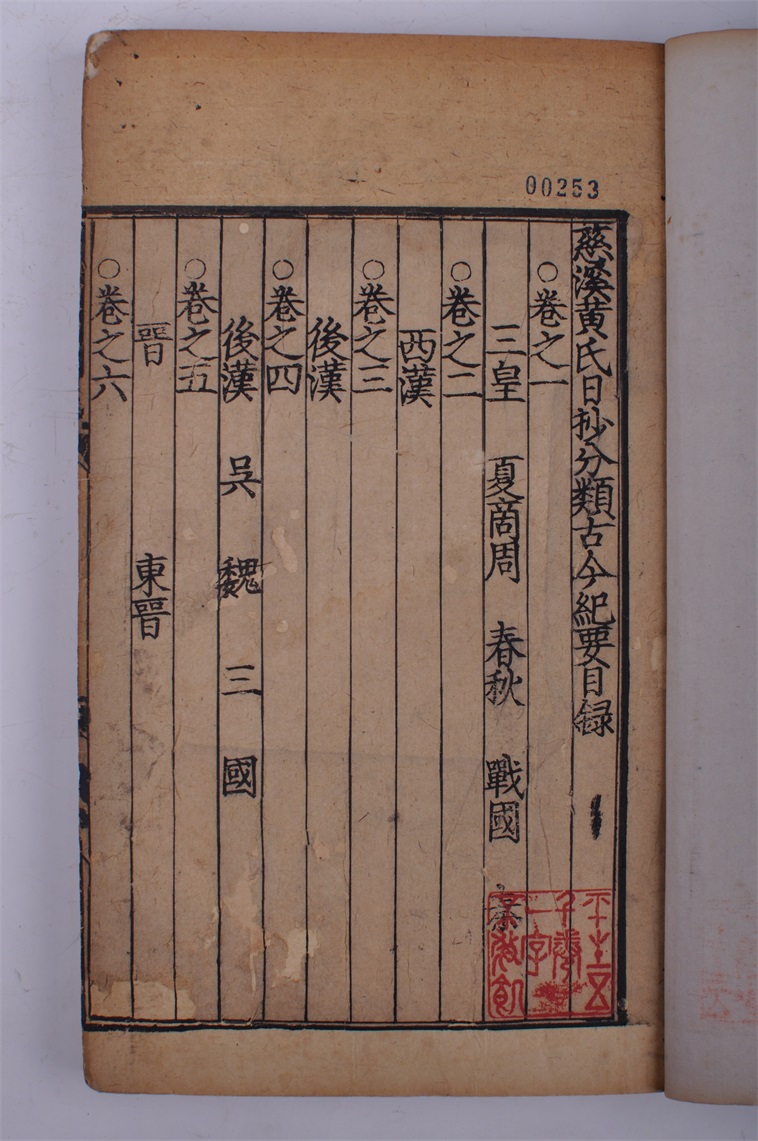 00253
慈溪黄氏日抄分類古今紀要目録
○卷之一
三皇 夏商周 春秋 戰國 秦
○卷之二
西漢
○卷之三
後漢
○卷之四
後漢 吳 魏 三 國
○卷之五
晉 東晉
○卷之六
平生五
千卷
一字
不救飢